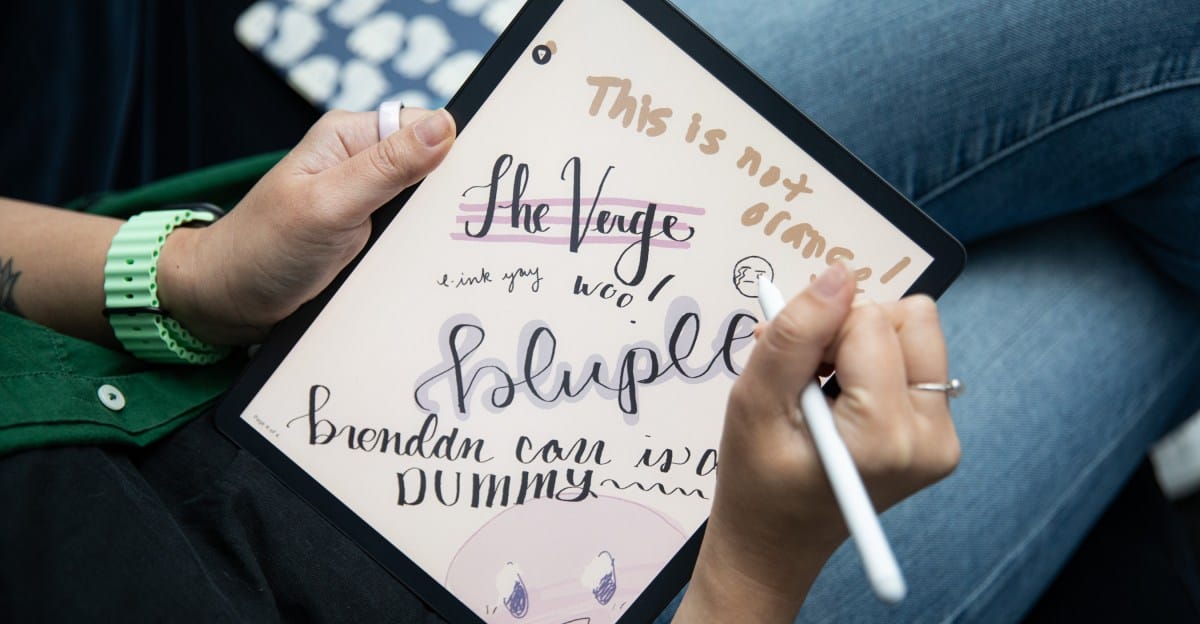 This is not
orange!
The Verge
e-ink yay
woo!
bluple
brendan carr is a
DUMMY
Page 4 of 4